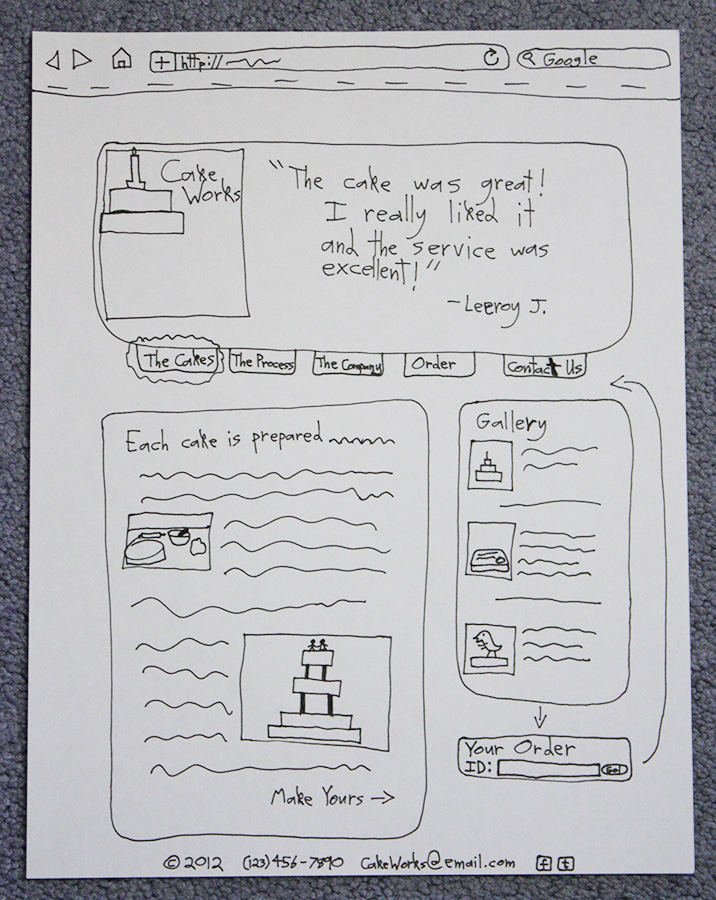 http://
Google
Cake
Works
"The cake was great!
I really liked it
and the service was
excellent!"
-Leeroy J.
The Cakes
The Process
The Company
Order
Contact Us
Each cake is prepared
Gallery
Make Yours →
Your Order
ID:
Go!
© 2012 (123) 456-7890 CakeWorks@email.com f t